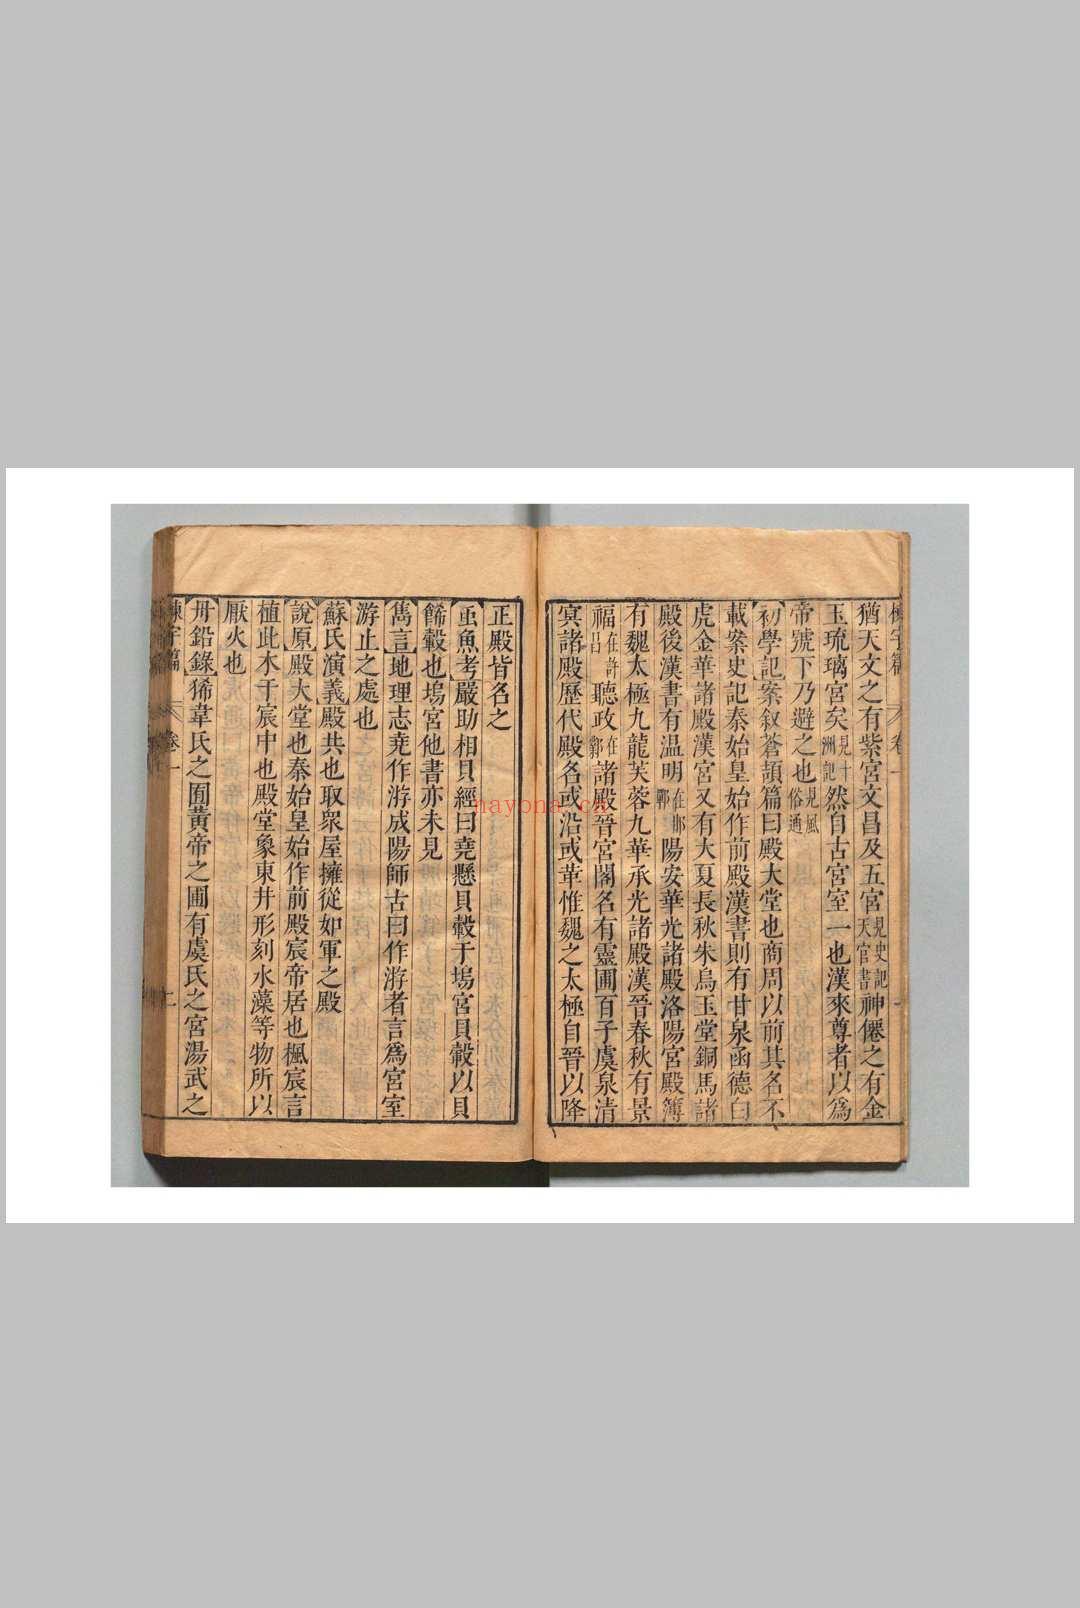 猶天文之有紫宮文昌及五宮見史記天官書神僊之有金
玉琉璃宮矣見十洲記然自古宮室一也漢來尊者以爲
帝號下乃避之也見風俗通
初學記案叙蒼頡篇曰殿大堂也商周以前其名不
載案史記秦始皇始作前殿漢書則有甘泉函德白
虎金華諸殿漢宮又有大夏長秋朱鳥玉堂銅馬諸
殿後漢書有温明在邯鄲陽安華光諸殿洛陽宮殿簿
有魏太極九龍芙蓉九華承光諸殿漢晉春秋有景
福在許昌聽政在鄴諸殿晉宮閣名有靈圃百子虞泉清
㝠諸殿歷代殿名或沿或革惟魏之太極自晉以降
正殿皆名之
䖝魚考嚴助相貝經曰堯懸貝轂于塢宮貝轂以貝
餙轂也塢宮他書亦未見
雋言地理志堯作游成陽師古曰作游者言爲宮室
游止之處也
蘇氏演義殿共也取眾屋擁從如軍之殿
說原殿大堂也秦始皇始作前殿宸帝居也楓宸言
植此木于宸中也殿堂象東井形刻水藻等物所以
厭火也
丹鉛錄狶韋氏之囿黃帝之圃有虞氏之宮湯武之
棟宇篇 卷一 二
hayona.ca